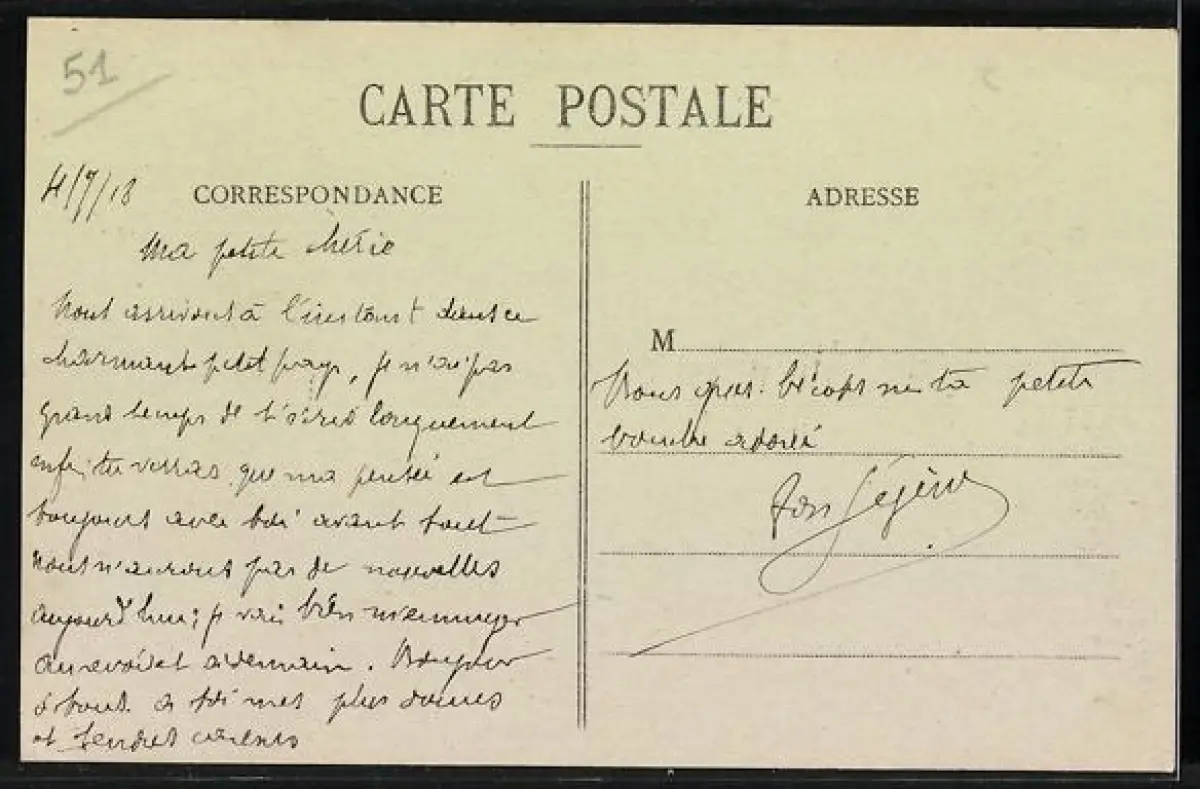 51
CARTE POSTALE
4/7/18 CORRESPONDANCE
Ma petite chérie
Nous arrivons à l'instant dans ce
charmant petit pays, je n'ai pas
grand temps de t'écrire longuement
enfin tu verras que ma pensée est
toujours avec toi avant tout
Nous n'aurons pas de nouvelles
aujourd'hui; je vais bien m'ennuyer
au revoir et à demain. Bonjour
à tous. a toi mes plus douces
et tendres caresses
ADRESSE
M
bécots sur ta petite
bouche adorée
Ton